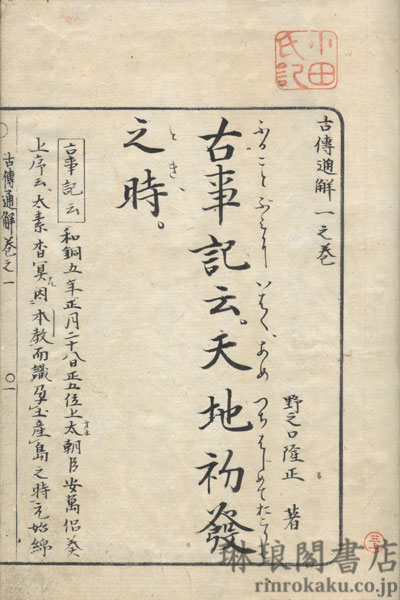 小田氏記
古傳通解一之巻
野之口隆正 著
ふることぶみに いはく、あめ つちはじめておこり
古事記云。天地初發
とき
之時。
古事記云 和銅五年正月二十八日正五位上太朝臣安萬侶奏
上序云、太素杳冥、因本教而識孕土産島之時、元始綿
古傳通解巻之一 〇一
琳琅閣書店
rinrokaku.co.jp